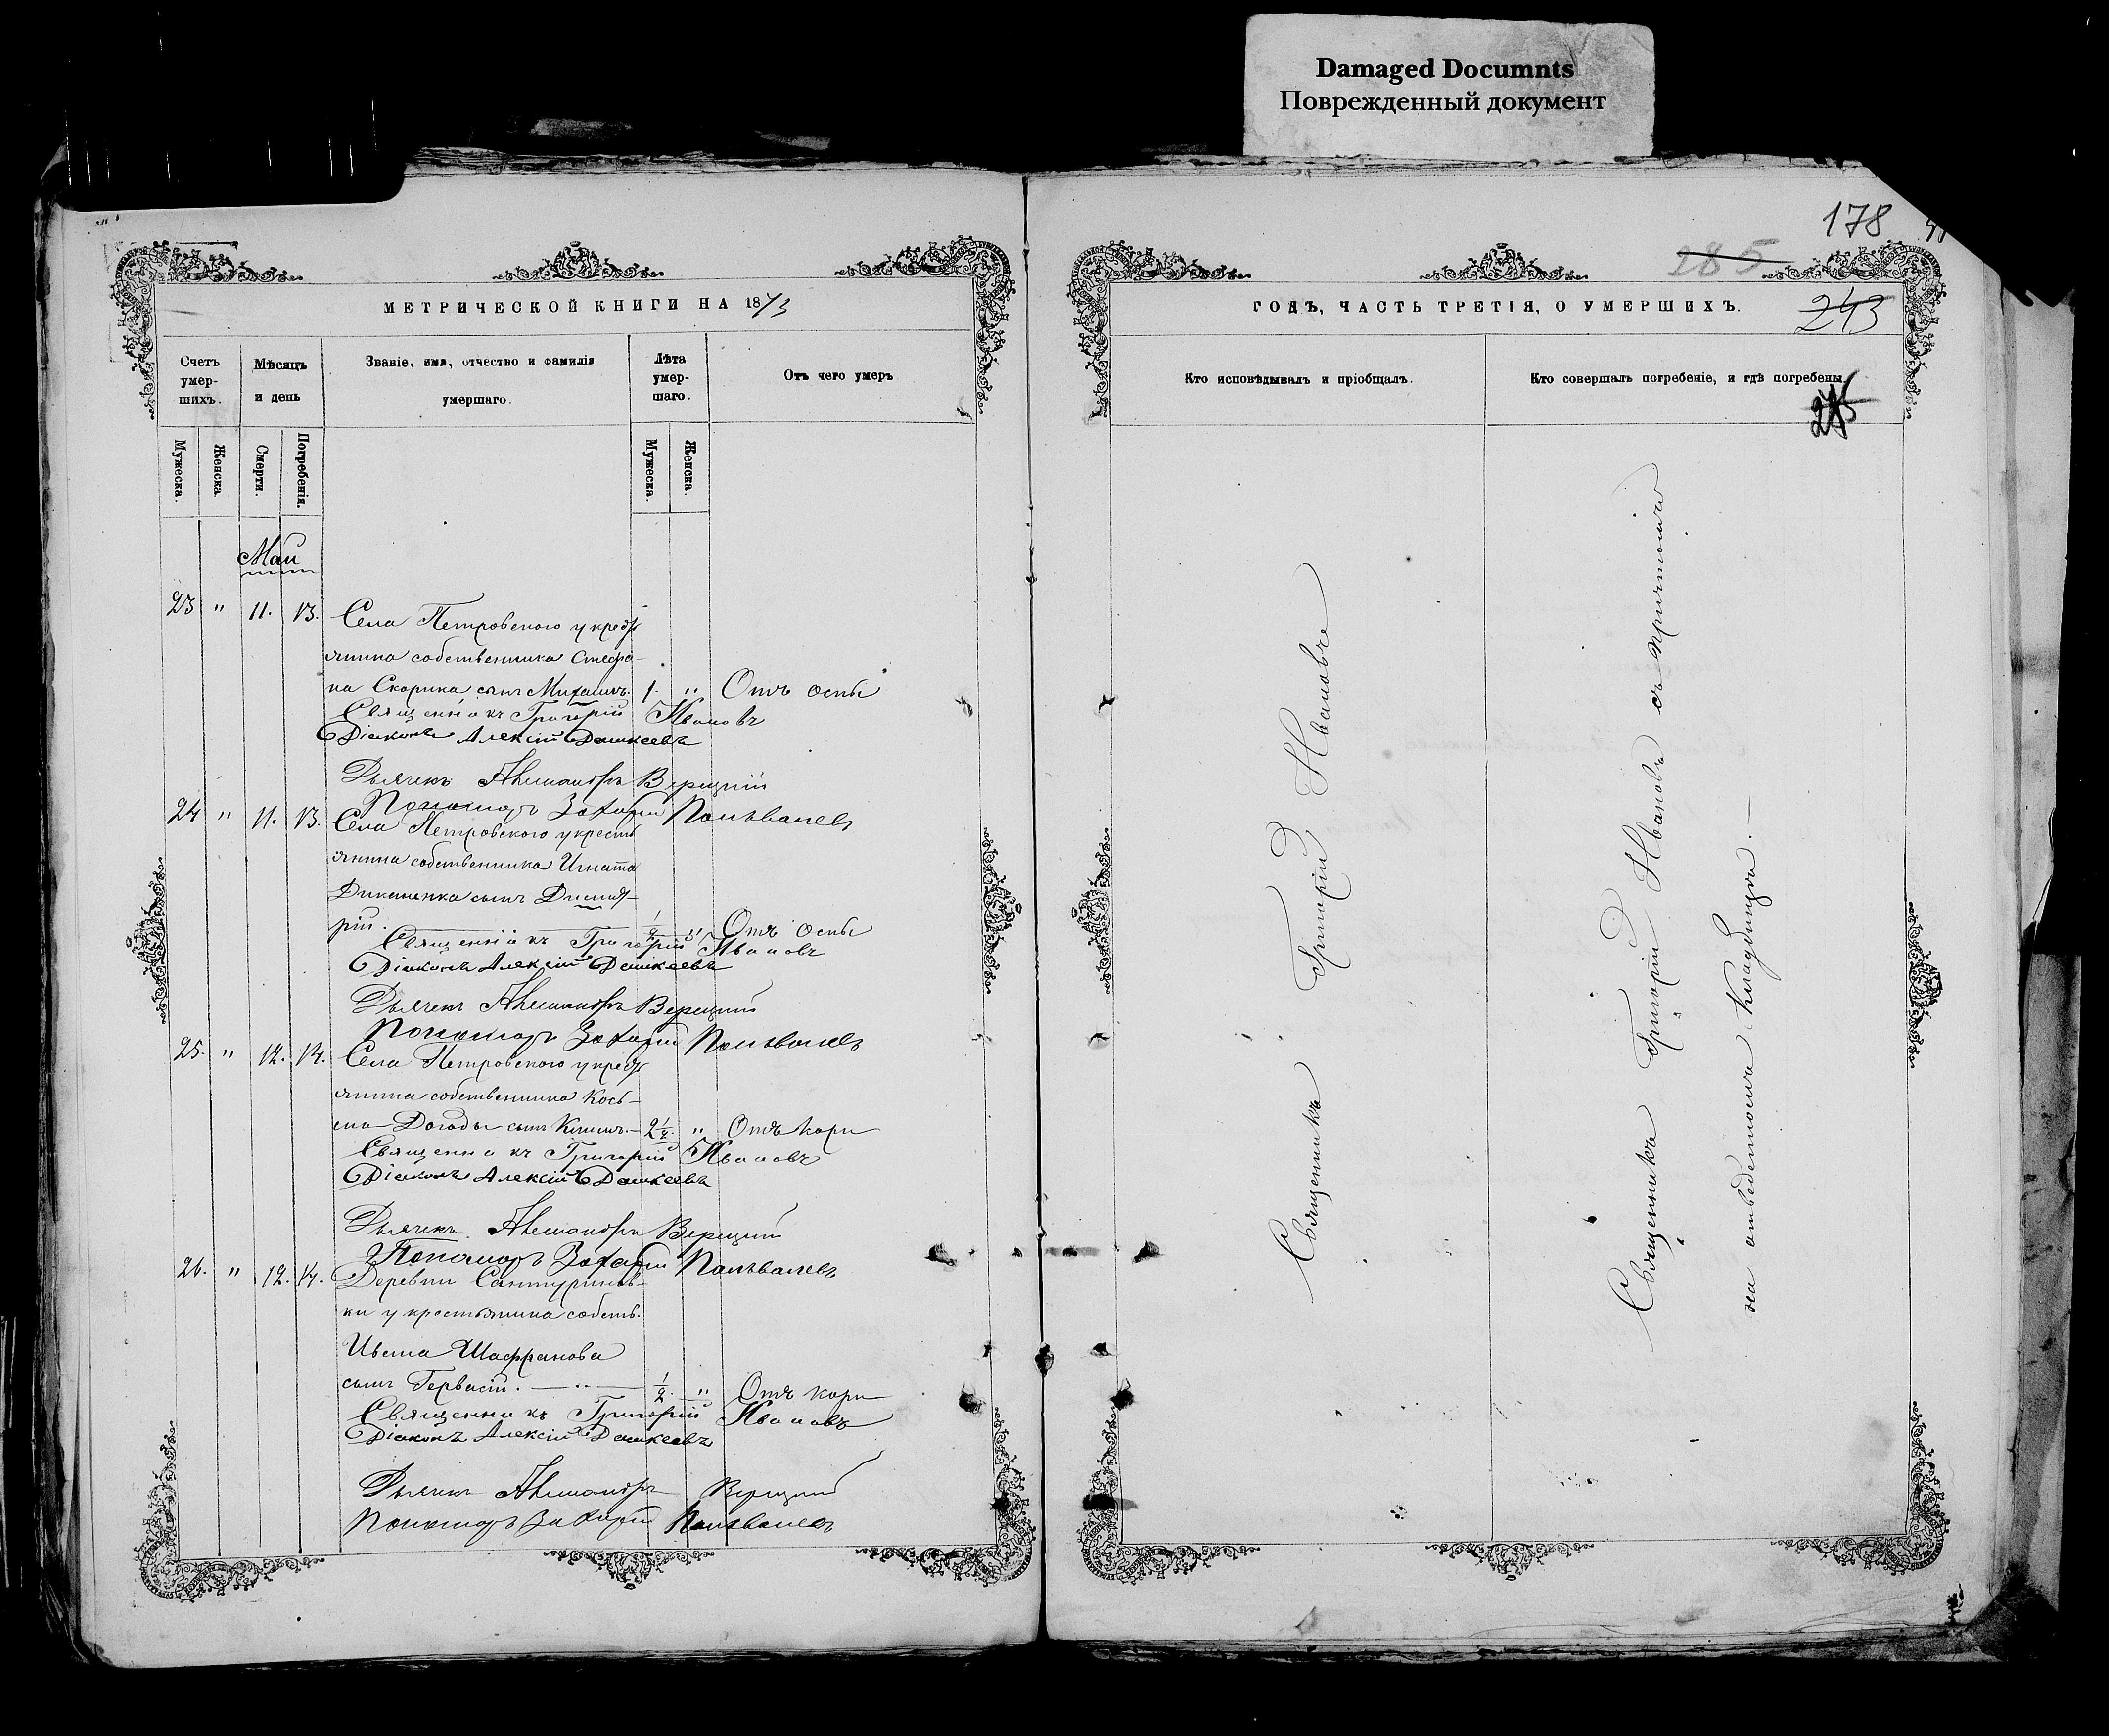 Damaged Documnts
Поврежденный документ
178
285
МЕТРИЧЕСКОЙ КНИГИ НА 1873
ГОДЪ, ЧАСТЬ ТРЕТІЯ, О УМЕРШИХЪ.
243
Счетъ умер-шихъ.
Мѣсяцъ и день
Званіе, имя, отчество и фамилія умершаго.
Лѣта умер-шаго.
Отъ чего умеръ
Кто исповѣдывалъ и пріобщалъ.
Кто совершалъ погребеніе, и гдѣ погребены.
Мужеска.
Женска.
Смерти.
Погребенія.
Мужеска.
Женска.
Маи
23 " 11. 13. Села Петровского у кресть
янина собственника Стефа-
на Скорика сынъ Михаилъ. 1. " Отъ оспы
Священникъ Григорій Ивановъ
Діаконъ Алексій Дашкеевъ
Дьячекъ Александръ Верецкій
Пономарь Захарій
24 " 11. 13. Села Петровского у кресть
янина собственника Игната
Диканенка сынъ Димит-
рій. 1/2 " Отъ оспы
Священникъ Григорій Ивановъ
Діаконъ Алексій Дашкеевъ
Дьячекъ Александръ Верецкій
Пономарь Захарій
25. " 12. 14. Села Петровского у кресть
янина собственника Кось-
мы Догоды сынъ Климъ. 2 1/4 " Отъ кори
Священникъ Григорій Ивановъ
Діаконъ Алексій Дашкеевъ
Дьячекъ Александръ Верецкій
Пономарь Захарій
26. " 12. 14. Деревни Сантуринов-
ки у крестьянина собств.
Ивана Шафранова
сынъ Гервасій. 1/2. " Отъ кори
Священникъ Григорій Ивановъ
Діаконъ Алексій Дашкеевъ
Дьячекъ Александръ Верецкій
Пономарь Захарій
Священникъ Григорій Ивановъ
Священникъ Григорій Ивановъ съ причтомъ
на отведенномъ кладбищѣ.